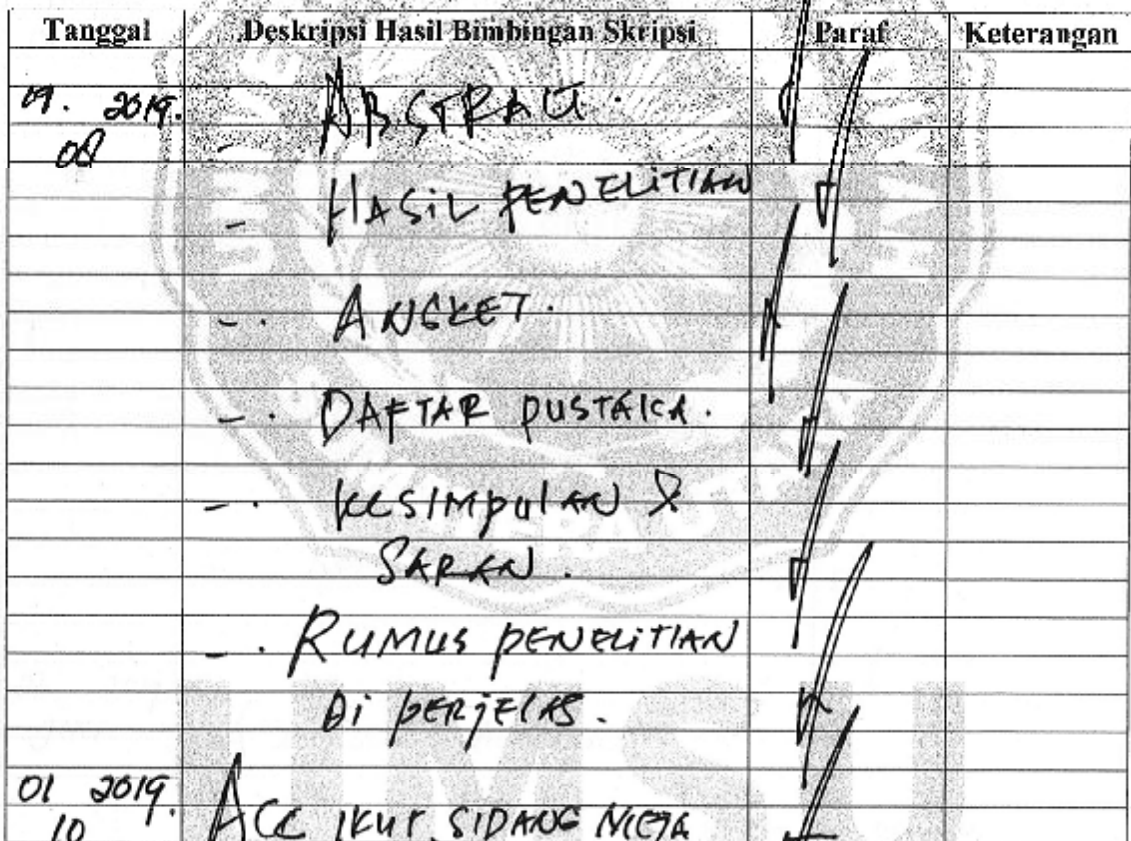 Tanggal Deskripsi Hasil Bimbingan Skripsi Paraf Keterangan
2019. - ABSTRAK.
08
- HASIL PENELITIAN
-. ANGKET.
-. DAFTAR PUSTAKA.
-. KESIMPULAN &
SARAN.
-. RUMUS PENELITIAN
DI PERJELAS.
01 2019. ACC IKUT SIDANG MEJA
10
UMSU